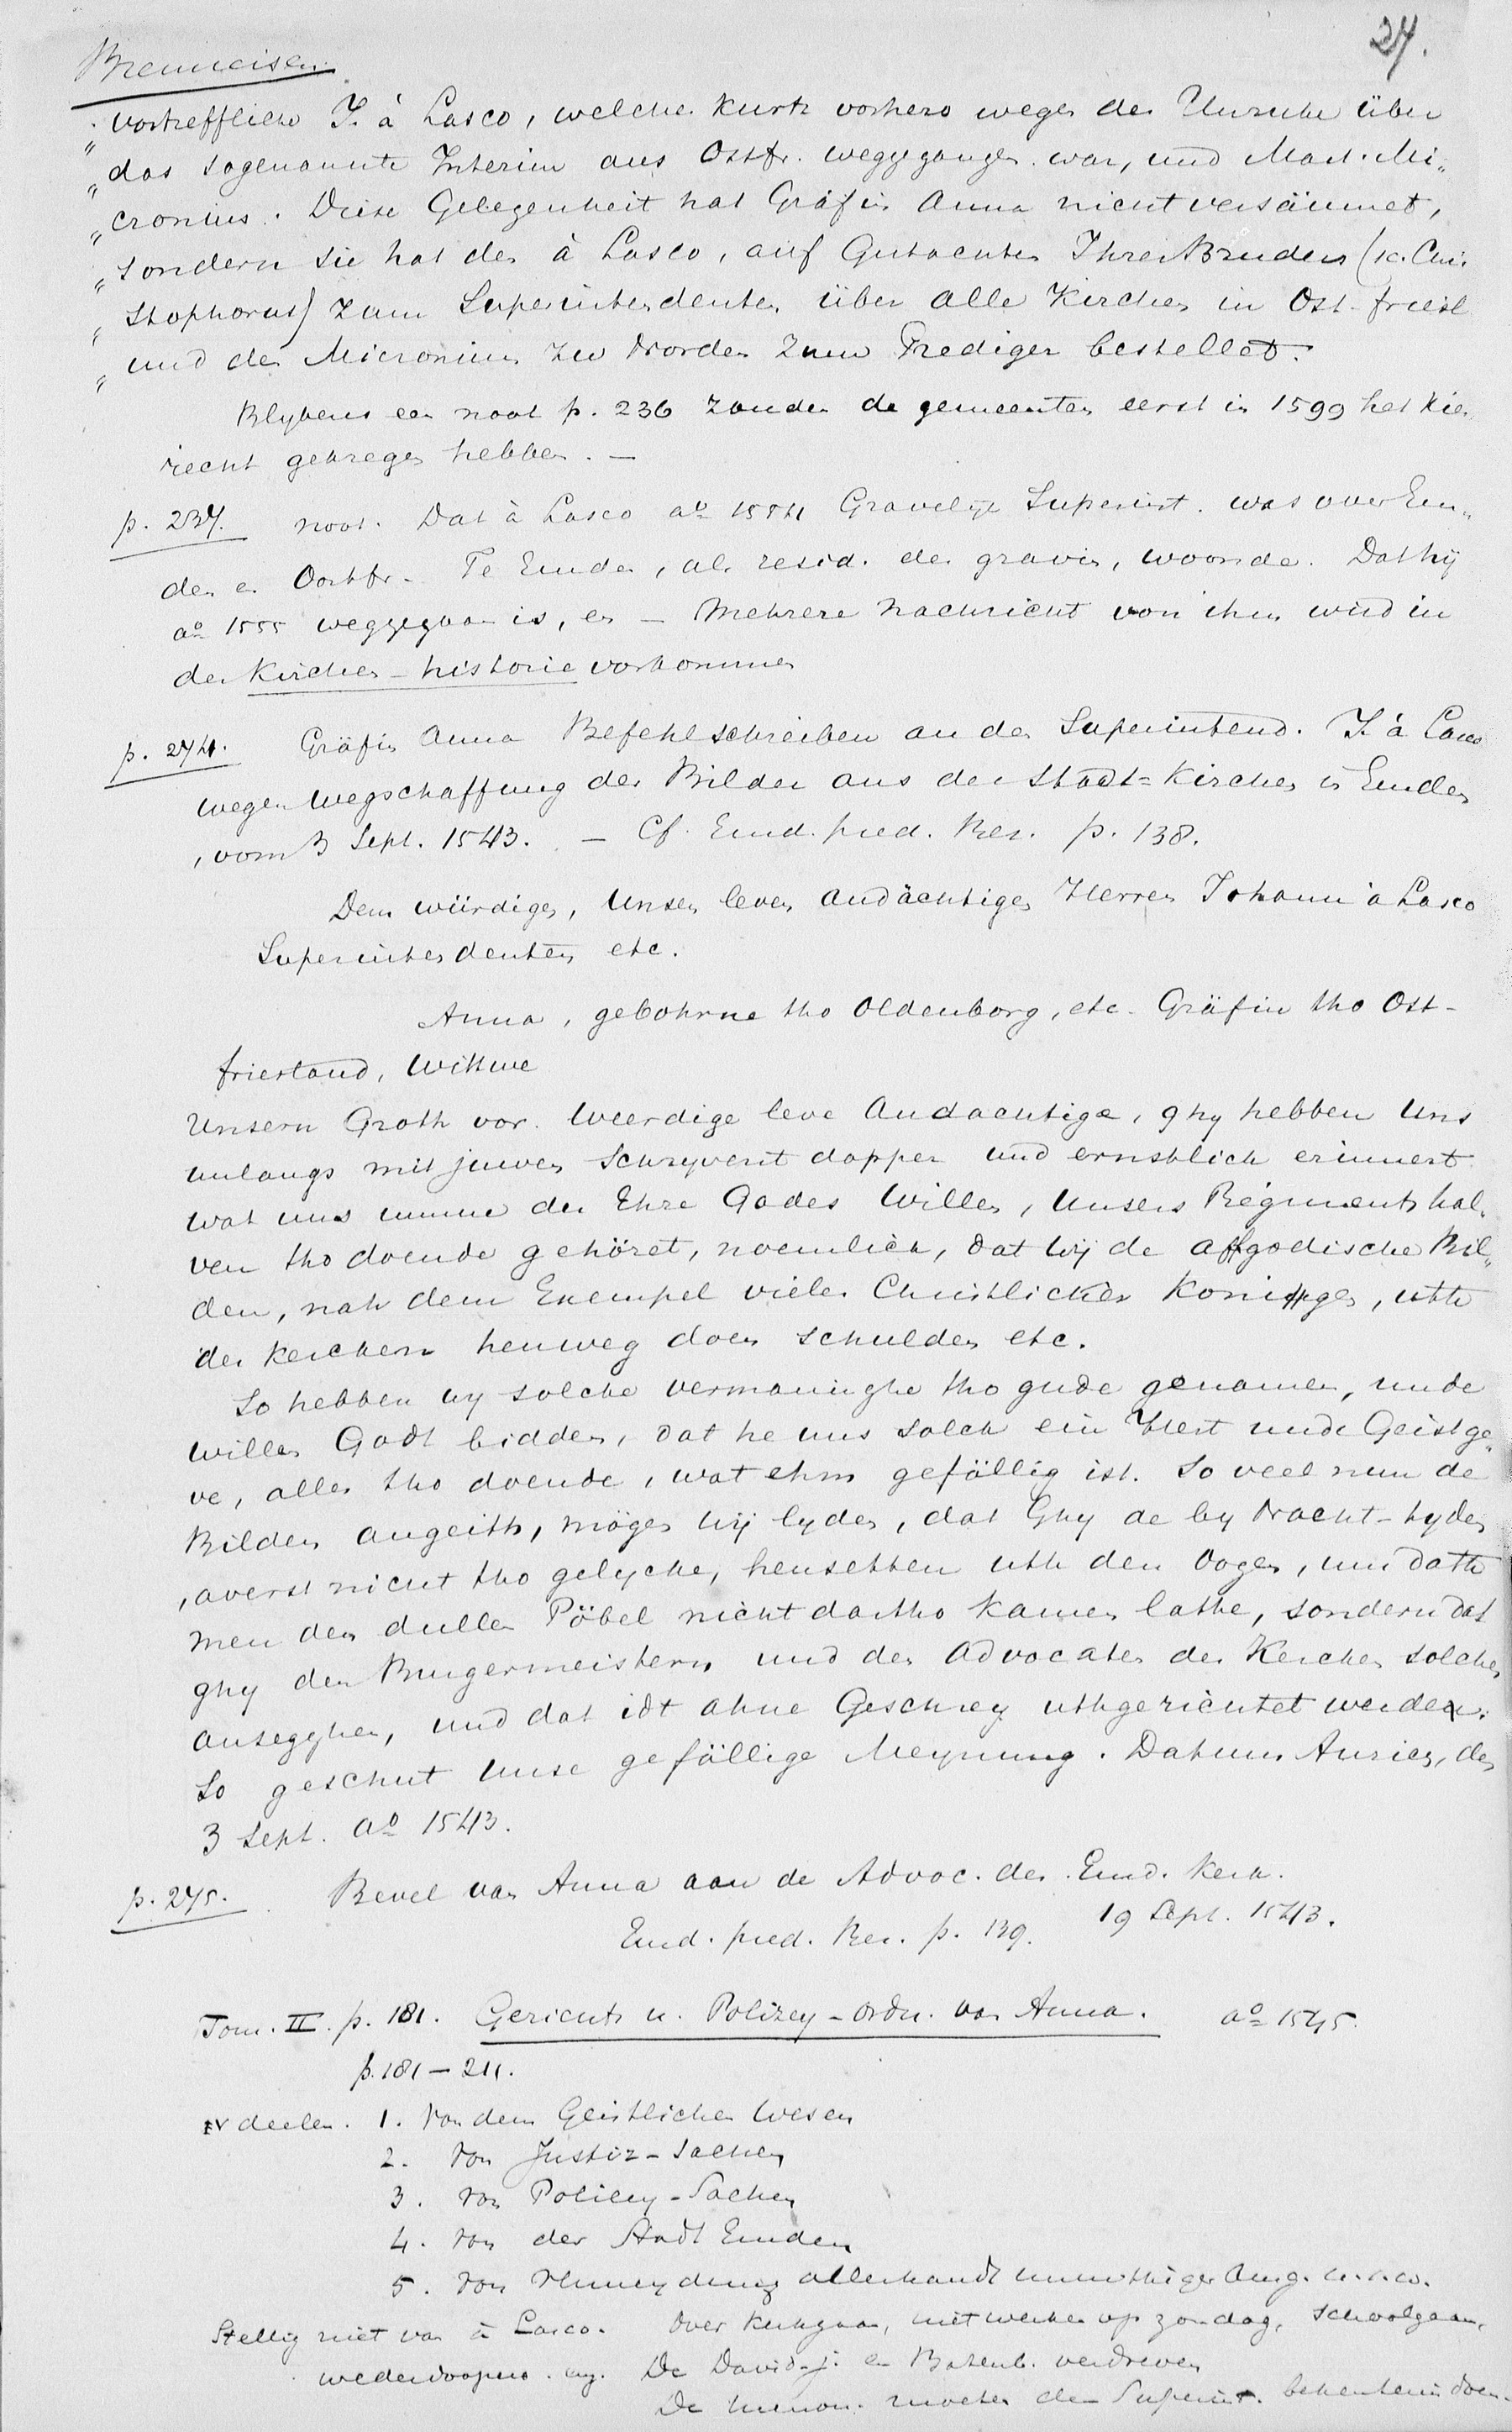 27.
Brenneisen
„vortreffliche J. à Lasco, welcher kurtz vorhero wegen der Unruhe über
„das sogenannte Interim aus Ostfr. weggegangen war, und Mart. Mi„
„cronius. Diese Gelegenheit hat Gräfin Anna nicht versäumet,
„sondern sie hat den à Lasco, auf Gutachten Ihres Bruders (sc. Chri.
„stophorus) zum Superintendenten über alle Kirchen in Ost-friesl
„und den Micronium zu Norden zum Prediger bestellet.
Blykens een noot p. 236 zouden de gemeenten eerst in 1599 het kies
recht gekregen hebben. —
p. 237. noot. Dat à Lasco ao 1544 Gravelyk Superint. was over Em„
den en Oostfr. Te Emden, als resid. der gravin, woonde. Dat hij
ao 1555 weggegaan is, en — Mehrere nachricht von ihm wird in
der Kirchen-historie vorkommen
p. 274. Gräfin Anna Befehlschreiben an den Superintend. J. à Lasco
wegen wegschaffung der Bilder aus der Stadt=Kirchen in Emden
, vom 3 Sept. 1543. — Cf. Emd. pred. Ber. p. 138.
Dem würdigen, Unsen leven andächtigen Herren Johann à Lasco
Superintendenten etc.
Anna, gebohrne tho Oldenborg, etc. Gräfin tho Ost-
friesland, Wittwe
Unsern Groth vor. Weerdige leve Andachtige, ghy hebben Uns
unlangs mit juwen schryvent dapper und ernstlich erinnert
wat uns umme der Ehre Gades Willen, Unsers Regiments hal„
ven tho doende gehöret, noemlich, dat wij de affgodische Bil„
der, nah dem Exempel vieler Christlicker Koninges, uth
der Kerchen henweg doen schulden etc.
So hebben wy solche vermaninghe tho gude genamen, unde
willen Godt bidden, dat he uns solch ein Hert unde Geist ge„
ve, alles tho doende, wat ehm gefällig ist. So veel nun de
Bilder angeith, mögen wij lyden, dat Ghy de by Nacht-tyden
, averst nicht tho gelycke, hensetten uth den Oogen, um dath
men den dullen Pöbel nicht dartho kamen lathe, sondern dat
ghy den Burgermeistern und den Advocaten der Kercken solches
anseggen, und dat idt ahne Geschrey uthgerichtet werde.
So geschut unse gefällige Meynung. Datum Aurick, den
3 Sept. ao 1543.
p. 275. Bevel van Anna aan de Advoc. der Emd. Kerk.
19 Sept. 1543.
Emd. pred. Ber. p. 139.
Tom. II. p. 181. Gerichts u. Polizey-Ordn. van Anna. ao 1545.
p. 181 — 211.
deelen. 1. Von dem Geistlichen Wesen
2. Von Justiz-Sachen
3. Von Policey-Sachen
4. Von der Stadt Emden
5. Von allerhandt unnüthiger u.s.w.
Stellig niet van à Lasco. Over kerkgaan, niet werken op zondag, schoolgaan,
wederdoopers. De David-j. en Batenb. verdreven
De menon. moeten den Superint. bekentenis doen.